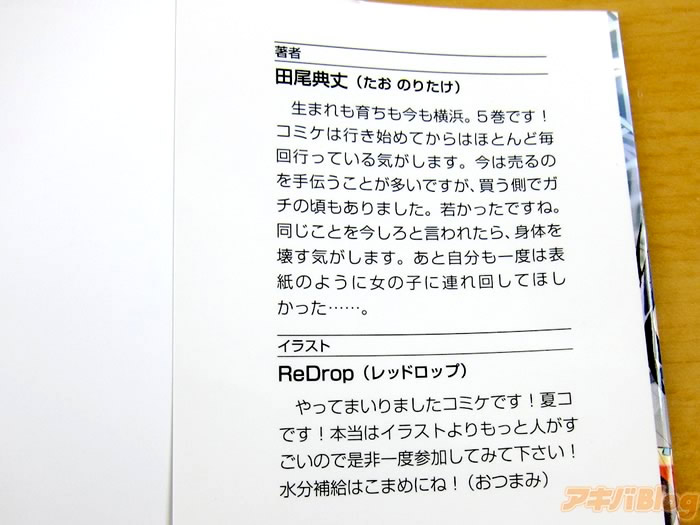 著者
田尾典丈（たお のりたけ）
生まれも育ちも今も横浜。５巻です！
コミケは行き始めてからはほとんど毎
回行っている気がします。今は売るの
を手伝うことが多いですが、買う側でガ
チの頃もありました。若かったですね。
同じことを今しろと言われたら、身体を
壊す気がします。あと自分も一度は表
紙のように女の子に連れ回してほし
かった……。
イラスト
ReDrop（レッドロップ）
やってまいりましたコミケです！夏コミ
です！本当はイラストよりもっと人がす
ごいので是非一度参加してみて下さい！
水分補給はこまめにね！（おつまみ）
アキバBlog